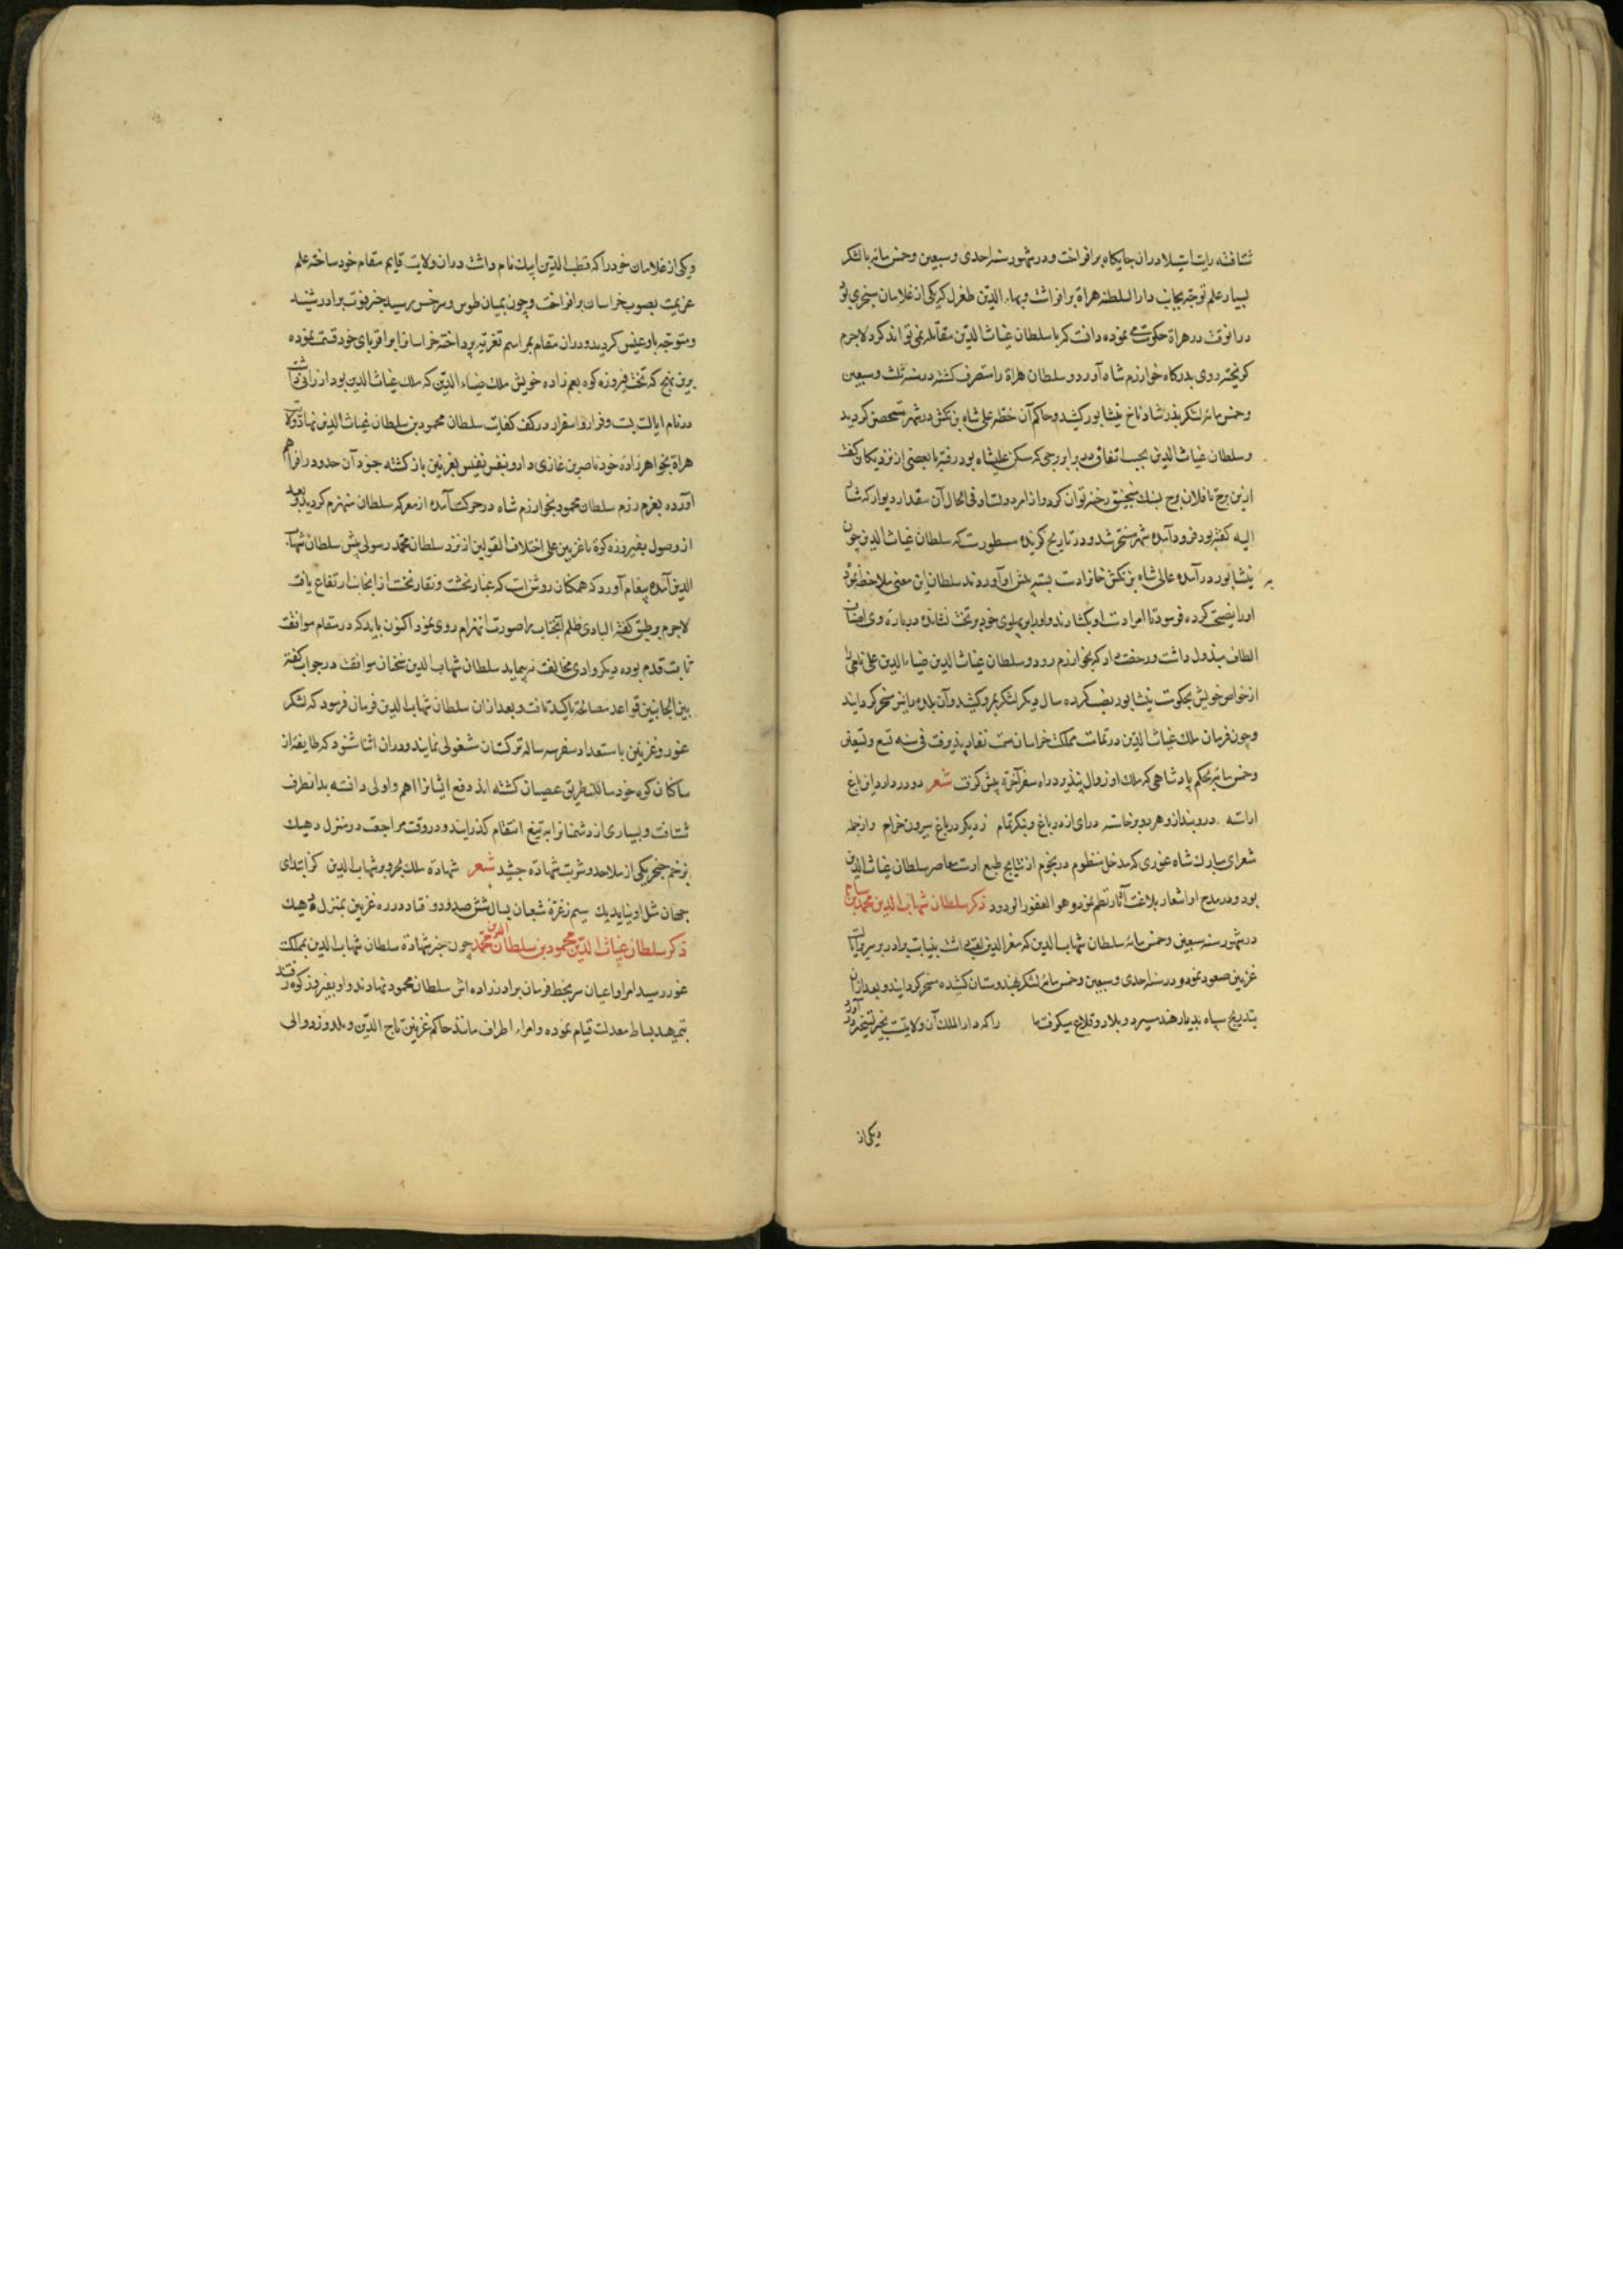 شتافته رایات استیلا دران جایکاه برافراخت و در شهور سنه احدی و سبعین و خمس مائه با لشکر
بسیار علم توجه بجانب دار السلطنه هراة برافراشت و بهاء الدین طغرل که یکی از غلامان سنجری بود
درانوقت در هراة حکومت می نموده دانست که با سلطان غیاث الدین مقابله نمی تواند کرد لاجرم
کریخته روی بدرکاه خوارزم شاه آورد و سلطان هراة را متصرف کشته در سنه ثلث و سبعین
و خمس مائه لشکر بدر شادیاخ نیشابور کشید و حاکم آن خطه علی شاه بن تکش در شهر متحصن کردید
و سلطان غیاث الدین بحسب اتفاق در برابر برجی که مسکن علیشاه بود رفته با بعضی از نزدیکان کفت
ازین برج تا فلان برج بسنک منجنیق رخنه توان کرد و از امر دولت او فی الحال آن مقدار دیوار که مشار
الیه کفته بود فرود آمده شهر مسخر شد و در تاریخ کزیده مسطورست که سلطان غیاث الدین چون
به نیشابور درآمده عالی شاه بن تکش خان را دست بسته پیش او آوردند سلطان این معنی ملاحظه نمود
او را نصیحتی کرده فرمود تا امرا دست او بکشادند و او را بپهلوی خود بر تخت نشانده درباره وی اصناف
الطاف مبذول داشت و رخصت داد که بخوارزم رود و سلطان غیاث الدین ضیاء الدین علی نامی را
از خواص خویش بحکومت نیشابور نصب کرده سال دیکر لشکر بمرو کشید و آن بلده را نیز مسخر کردانید
و چون فرمان ملک غیاث الدین در تمامت مملکت خراسان سمت نفاد پذیرفت فی سنه تسع و تسعین
و خمس مائه بحکم پادشاهی که ملک او زوال نپذیرد راه سفر آخرة پیش کرفت شعر دو در دارد این باغ
اراسته درو بند ازو هر دو برخاسته درای از در باغ و بنکر تمام ز دیکر در باغ بیرون خرام و از جمله
شعرای مبارک شاه غوری که مدخل منظوم در نجوم از نتایج طبع اوست معاصر سلطان غیاث الدین
بود و در مدح او اشعار بلاغت آثار نظم نمود و هو الغفور الودود ذکر سلطان شهاب الدین محمد بن سام
در شهور سنه سبعین و خمس مائه سلطان شهاب الدین که معز الدین لقب داشت بنیابت برادر بر سریر ایالت
غزنین صعود نمود و در سنه احدی و سبعین و خمس مائه لشکر بهندوستان کشیده مسخر کردانید و بعد ازان
بتدریج سپاه بدیار هند میبرد و بلاد و قلاع میکرفت تا را که دار الملک آن ولایتست بحیز تسخیر درآورد
ویکی از
ویکی از غلامان خود را که قطب الدین ایبک نام داشت دران ولایت قایم مقام خود ساخته علم
عزیمت بصوب خراسان برافراخت و چون بمیان طوس و سرخس رسید خبر فوت برادر شنید
و متوجه بادغیس کردید و دران مقام بمراسم تعزیه پرداخته خراسانرا بر اقربای خود قسمت نموده
برین نهج که تخت فیروزه کوه بعم زاده خویش ملک ضیاء الدین که ملک غیاث الدین بود ارزانی داشت
در نام ایالت بست و فراه و اسفرار در کف کفایت سلطان محمود بن سلطان غیاث الدین نهاد و ولایت
هراة بخواهرزاده خود ناصر بن غازی داد و بنفس نفیس بغزنین باز کشته جنود آن حدود را فراهم
آورده بعزم رزم سلطان محمود بخوارزم شاه در حرکت آمده از معرکه سلطان منهزم کردید و بعد
از وصول بفیروزه کوه یا غزنین علی اختلاف القولین از نزد سلطان محمد رسولی پیش سلطان شهاب
الدین آمده پیغام آورد که همکانرا روشن است که غبار نخست و نقار نخست از انجانب ارتفاع یافت
لاجرم بر طبق کفته البادی اظلم آنجناب را صورت انهزام روی نمود اکنون باید که در مقام موافقت
ثابت قدم بوده دیکر وادی مخالفت نپیماید سلطان شهاب الدین سخنان موافقت در جواب کفته
بین الجانبین قواعد مصالحة تاکید یافت و بعد ازان سلطان شهاب الدین فرمان فرمود که لشکر
غور و غزنین باستعداد سفر سه ساله ترکستان مشغولی نمایند و دران اثنا شنود که طایفه از
ساکنان کوه خود سالک طریق عصیان کشته اند دفع ایشانرا اهم و اولی دانسته بدانطرف
شتافت و بسیاری از دشمنانرا بر تیغ انتقام کذرانید و در وقت مراجعت در منزل دمیک
بزخم خنجر یکی از ملاحده شربت شهاده چشید شعر شهادة ملک بحر و بر شهاب الدین کز ابتدای
جهان مثل او نیاید یک سیم ز غره شعبان بسال ششصد و دو فتاد در ره غزنین بمنزل دمیک
ذکر سلطان غیاث الدین محمود بن سلطان غیاث الدین محمد چون خبر شهادة سلطان شهاب الدین بمملکت
غور رسید امرا و اعیان سر بخط فرمان برادرزاده اش سلطان محمود نهادند و او بفیروزکوه رفته
بتمهید بساط معدلت قیام نموده و امراء اطراف مانند حاکم غزنین تاج الدین و یلدوز و والی